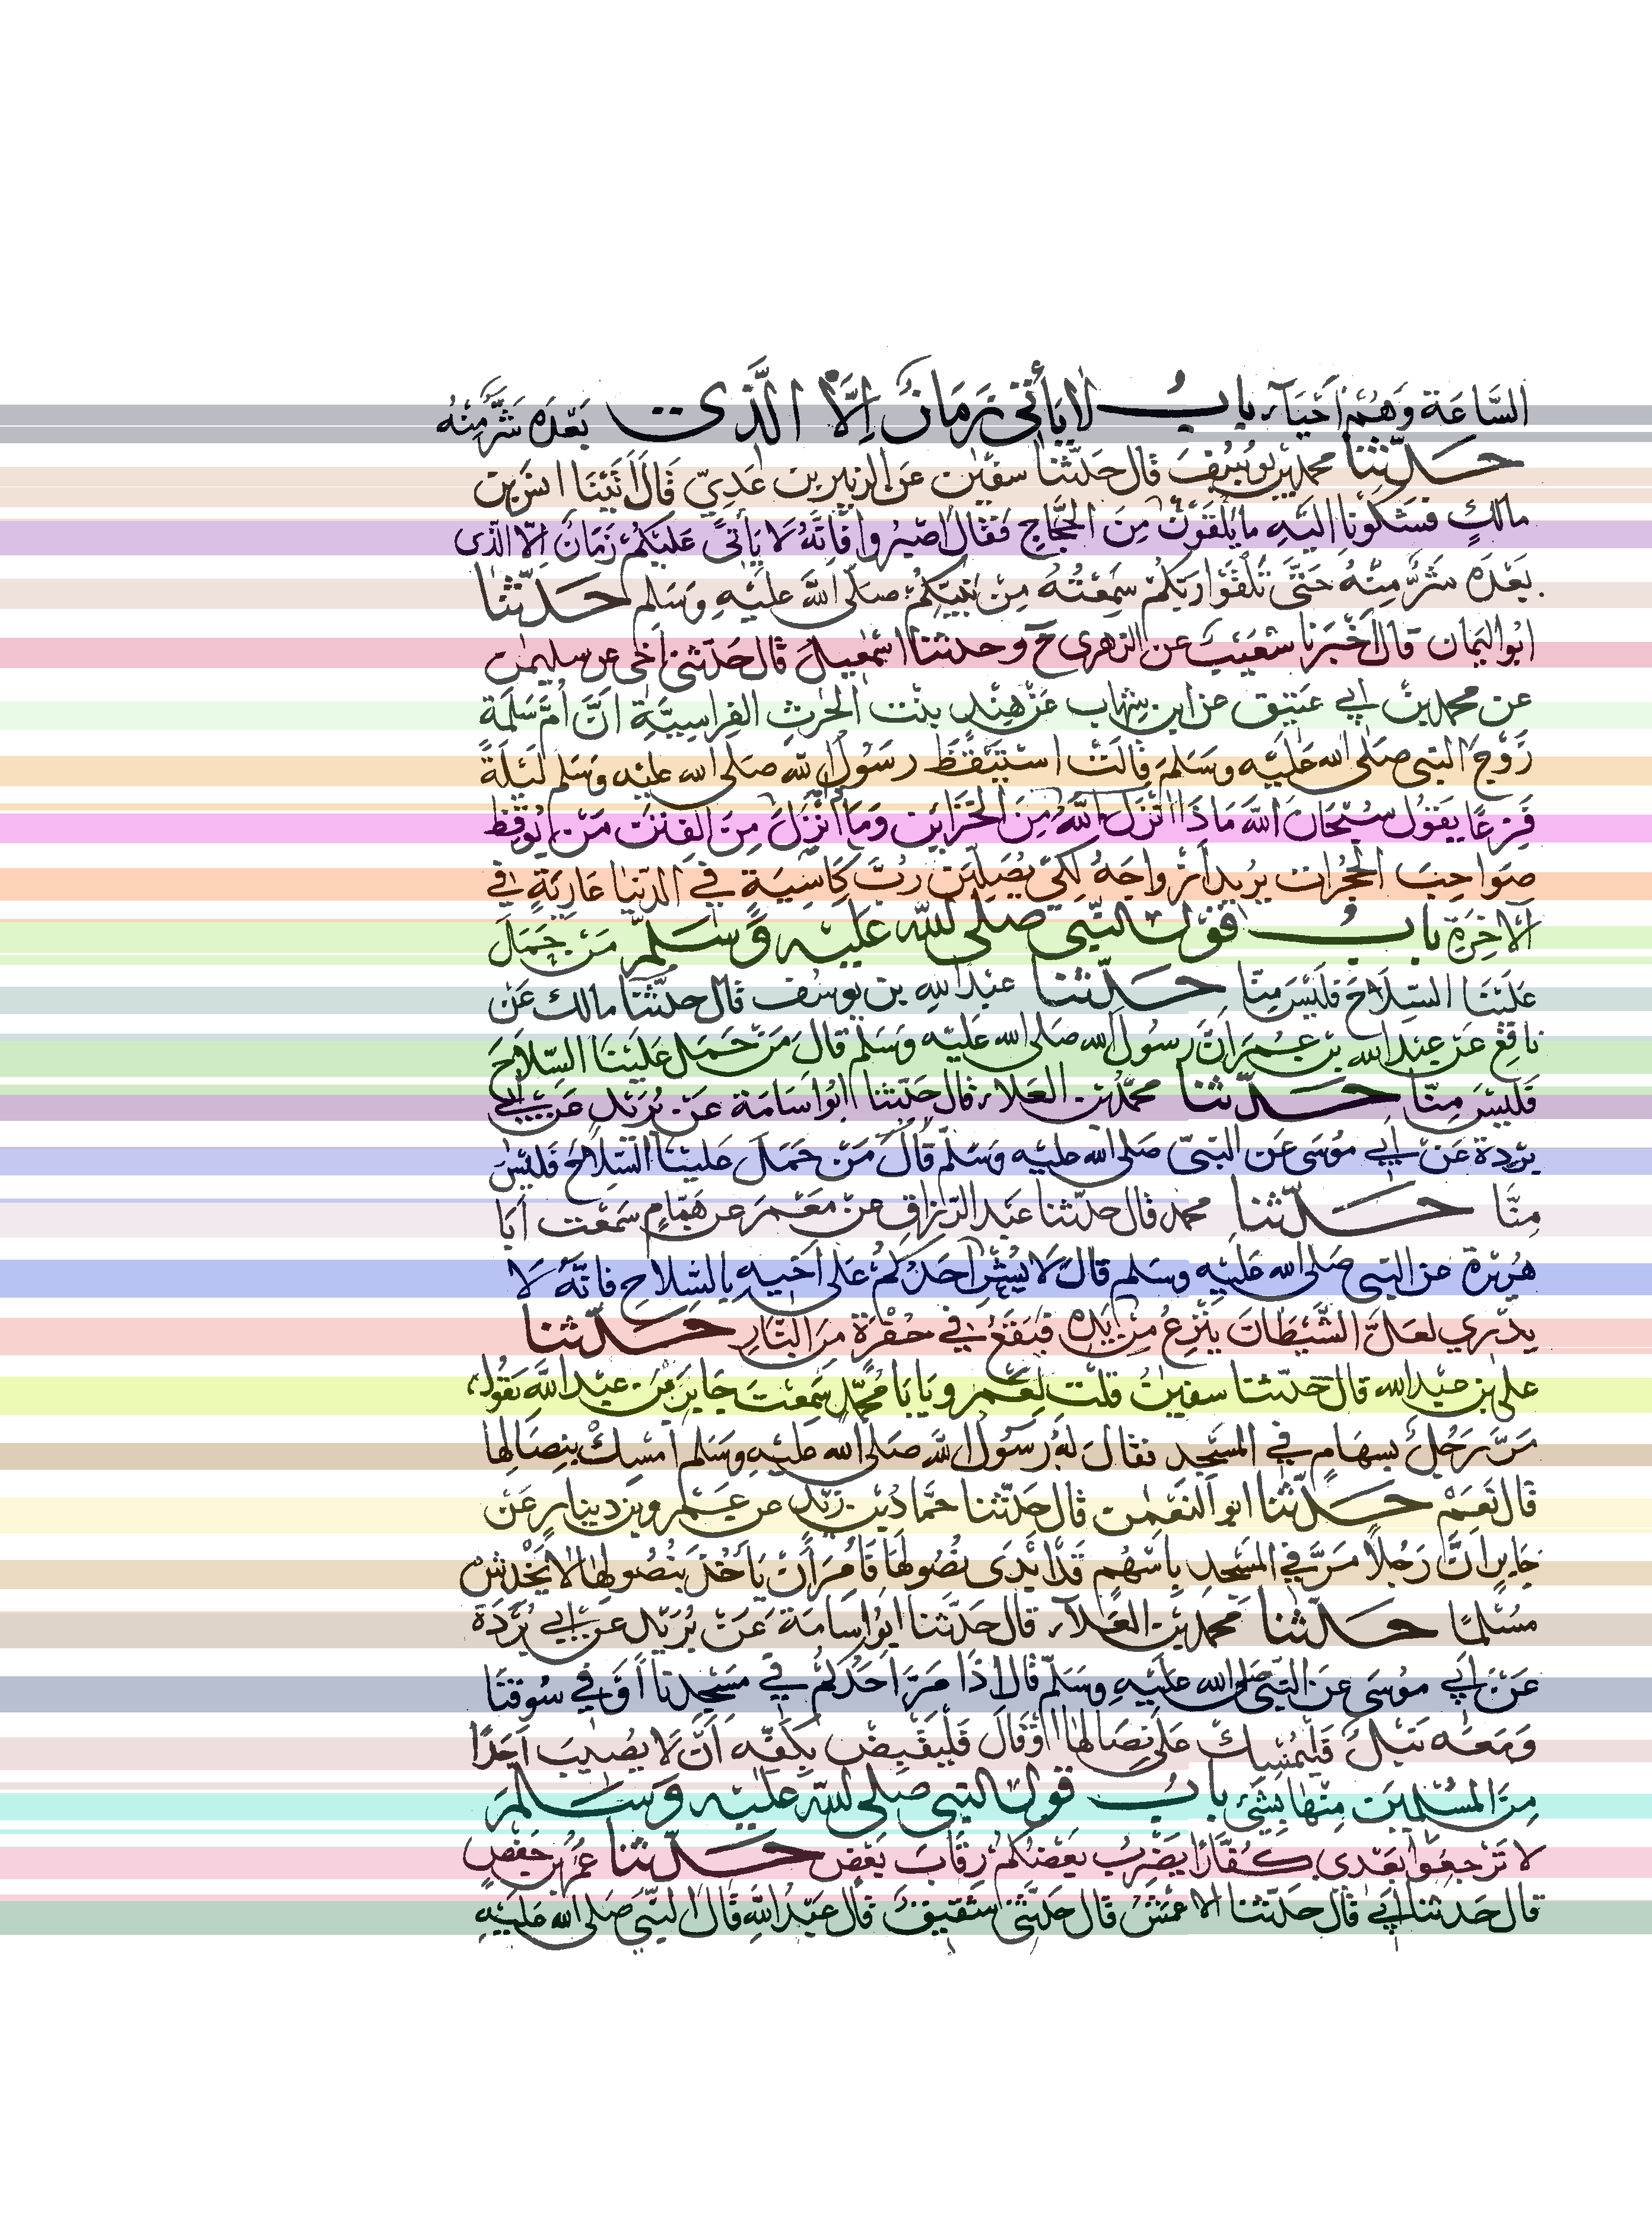 السَّاعَة وَهُمْ أَحْيَآء باب لا يَأتى زَمَانٌ اِلَّا الَّذى بَعْدَه شَرٌّ مِنْهُ
حَدَّثنا محمد بن يُوسُفَ قال حَدَّثنا سفيٰن عَن الزبير بن عَدِيّ قَالَ اَتَيْنَا انس بن
مالكٍ فشكَونا اليَهِ ما يَلْقَوْنَ مِنَ الحَجَّاجِ فقَالَ اصْبِرُوا فَاِنَّهُ لَا يَأتى عَليَكمْ زَمَانٌ اِلَّا الذى
بَعْدَه شَرٌّ مِنْهُ حَتَّى تَلْقَوْا رَبَّكُمْ سَمِعْتُهُ مِنْ نَبِيّكُمْ صَلّى اللهُ عَليَهِ وَسَلم حَدَّثَنا
ابُو اليَمَان قَالَ أَخْبَرَنا شعَيبٌ عَن الزهرى ح وحدثنا اسمٰعِيلُ قَالَ حَدَّثنى أخى عن سليمٰن
عن محمد بن أبي عَتيق عن ابن شِهَاب عَنْ هِنْدٍ بنْت الحٰرثِ الفِراسِيَّةِ اَنَّ أُمَّ سَلَمَة
زَوْجَ النبى صَلى الله عَليَه وسَلمَ قالَتْ اسْتَيْقَظَ رسُولُ الله صَلى الله عليه وَسَلم لَيْلَةً
فَزِعًا يَقُولُ سُبْحَانَ اللهِ مَا ذَا اَنْزَلَ اللهُ مِنَ الخَزَائِن وَمَا أُنْزِلَ مِنَ الفِتَن مَنْ يُوقِظ
صَوَاحِبَ الحُجُرات يُرِيدُ أَزْواجَهُ لِكَىْ يُصَلِّينَ رُبَّ كَاسِيَةٍ فِي الدُّنيَا عَارِيَةٍ في
الآخِرَةِ باب قَوْل النَّبِى صَلى الله عَليَه وَسَلَّم مَنْ حَمَلَ
عَلَيْنَا السِّلاحَ فَليْسَ مِنَّا حَدَّثنا عَبْدُ اللهِ بن يُوسُف قال حدَّثنا مالك عَنْ
نافِعٍ عَن عبد الله بن عُمر اَنَّ رسُولَ الله صَلى الله عَليَه وَسَلم قالَ مَنْ حَمَل عَليْنَا السِّلَاحَ
فَليسَ مِنّا حَدَّثنا محمَّدُ بن العَلاء قال حَدَّثنا ابُو اسَامَة عَنْ بُرَيْدٍ عَنْ أبي
بُرْدة عَنْ أَبِي مُوسَى عَن النبِىّ صَلى الله عليه وَسَلّم قَالَ مَنْ حَمَلَ عَلينَا السّلاحَ فَليْسَ
مِنَّا حَدَّثنا محمد قال حدَّثنا عَبْد الرَّزاق عن مَعْمَر عن هَمَّامٍ سَمعْت اَبَا
هُرَيْرَة عَن النبي صَلى الله عَليَه وسَلم قالَ لا يُشِيْرُ اَحَدُكُمْ عَلى أخِيهِ بالسِّلاحِ فاِنَّهُ لَا
يدْري لعَلَّ الشَّيْطَانَ يَنْزِعُ مِنْ يَدِه فَيَقَعُ في حُفْرَة مِنَ النَّارِ حَدَّثنا
على بن عَبد الله قال حَدَّثنا سفيٰنُ قلْت لِعَمْرو يَا بَا مُحمَّدٍ سَمِعْتَ جَابِرَ بْنَ عَبد اللهِ يَقُولُ
مَرَّ رَجُلٌ بِسِهَامٍ فِي المَسْجِدِ فقَالَ لَهُ رَسُولُ الله صَلى الله عَليهِ وَسَلم اَمْسِكْ بِنِصَالِها
قَالَ نَعَمْ حَدَّثنا ابو النعْمٰن قال حَدّثنا حَمَّادُ بْن زيْد عن عَمْرو بن دينارٍ عَنْ
جَابِرٍ اَنَّ رَجُلاً مَرَّ فِي المَسْجِدِ بِاَسْهُمٍ قَدْ اَبْدَى نُصُولَهَا فَاُمِرَ اَنْ يَأخُذَ بِنُصُولِهَا لَا يَخْدِشْ
مُسْلِمًا حَدَّثنا محمد بن العَلآء قال حَدَّثَنا ابُو اسَامَة عَنْ بُرَيْد عَن أبي بُرْدَة
عَنْ أبي مُوسَى عَن النّبِى صَلى الله عَليَهِ وسَلّم قَالَ اذَا مَرَّ اَحَدُكُمْ فِي مَسْجِدِنَا أوْ فِي سُوقِنَا
وَمَعَهُ نَبْلٌ فَلْيُمْسِكْ عَلى نِصَالِهَا اَوْ قَالَ فَلْيَقْبِضْ بِكَفِّه اَنْ لَا يُصِيبَ اَحَدًا
مِنَ المُسْلِمِيْنَ مِنْهَا بِشَيْء بابُ قول النبي صَلى الله عليَه وسَلمَ
لا تَرْجِعُوا بَعْدى كُفَّارًا يَضْرِبُ بَعْضُكُمْ رِقَابَ بَعْضٍ حَدَّثنا عُمَرُ بن حَفْصٍ
قال حَدثنا أبي قال حَدَّثنا الاعْمَشُ قَال حَدَّثَنى شَقِيقٌ قَال عَبْدُ اللهِ قَالَ النَّبِيّ صَلى الله عَليَهِ